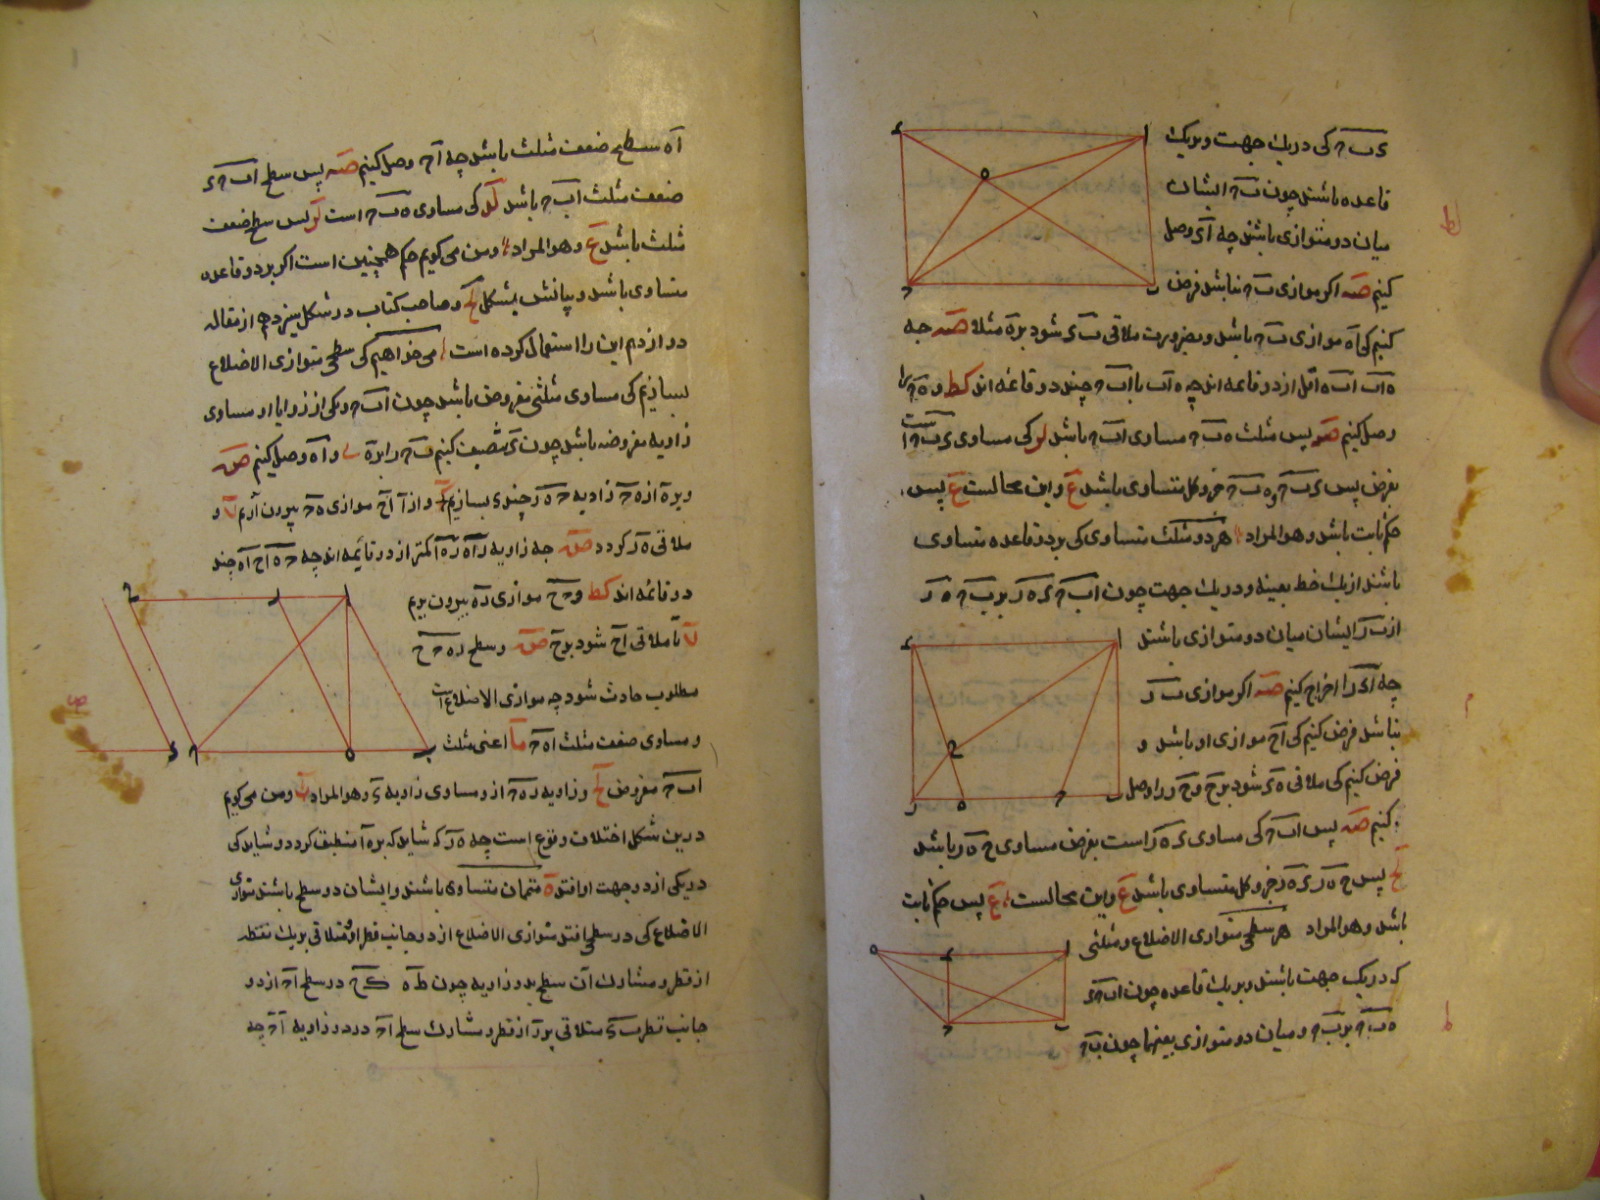 ءب‌ح کی در یک جهت و بر یک
قاعده باشند چون ب‌ح ایشان
میان دو متوازی باشند چه اء وصل
کنیم صه اکر موازی ب‌ح نباشد فرض
کنیم کی اه موازی ب‌ح باشد و بضرورت ملاقی ب‌ء شود بره مثلا صه چه
ه‌اب اب‌ه اقل از دو قاعمه اند چه ه‌اب با اب‌ح چند دو قاعمه اند کط و ه‌ح را
وصل کنیم صه پس مثلث ه‌ب‌ح مساوی اب‌ح باشد لز کی مساوی ءب‌ح است
بفرض پس ءب‌ح و ه‌ب‌ح جزو کل متساوی باشد ع و این محالست ع پس
حکم ثابت باشد و هو المراد هر دو مثلث متساوی کی بر دو قاعده متساوی
باشند از یک خط بعینه و در یک جهت چون اب‌ح ءه‌ر بر ب‌ح ه‌ر
از ب‌ر ایشان میان دو متوازی باشند
چه اء را اخراج کنیم صه اکر موازی ب‌ر
نباشد فرض کنیم کی اح موازی او باشد و
فرض کنیم کی ملاقی ه‌ء شود بر ح و ح‌ر را وصل
کنیم صه پس اب‌ح کی مساوی ءه‌ر است بفرض مساوی ح‌ه‌ر باشد
لح پس ح‌ه‌ر ءه‌ر جزو کل متساوی باشد ع و این محالست ع پس حکم ثابت
باشد و هو المراد هر سطحی متوازی الاضلاع و مثلثی
که در یک جهت باشند و بر یک قاعده چون اب‌ح‌ء
ه‌ب‌ح بر ب‌ح و میان دو متوازی بعینهما چون ب‌ح
اه سطح ضعف مثلث باشد چه اح وصل کنیم صه پس سطح اب‌ح‌ء
ضعف مثلث اب‌ح باشد لد کی مساوی ه‌ب‌ح است لز پس سطح ضعف
مثلث باشد ع و هو المراد و من می کویم حکم همچنین است اکر بر دو قاعده
متساوی باشد و بیانش بشکل لح و صاحب کتاب در شکل سیزدهم از مقاله
دوازدهم این را استعمال کرده است می خواهیم کی سطحی متوازی الاضلاع
بسازیم کی مساوی مثلثی مفروض باشد چون اب‌ح و یکی از زوایا او مساوی
زاویه مفروضه باشد چون ء تنصیف کنیم ب‌ح را بره ی و اه وصل کنیم صه
و بره از ه‌ح زاویه ح‌ه‌ر چند ء بسازیم و از ا اح موازی ه‌ح بیرون آریم لا و
ملاقی ه‌ر کردد صه چه زاویه راه ره‌ا کمتر از دو قایمه اند چه ح‌ه‌ا ح‌اه چند
دو قائمه اند کط و ح‌ح موازی ره بیرون بریم
لا تا ملاقی اح شود بر ح صه و سطح ره‌ح‌ح
مطلوب حادث شود چه موازی الاضلاع است
و مساوی ضعف مثلث اه‌ح ما اعنی مثلث
اب‌ح مفروض لح و زاویه ره‌ح از و مساوی زاویه ء و هو المراد و من می کویم
درین شکل اختلاف وقوع است چه ه‌ر که شاید که بره‌ا منطبق کردد و شاید کی
در یکی از دو جهت او افتد متممان متساوی باشند و ایشان دو سطح باشند متوازی
الاضلاع کی در سطحی افتد متوازی الاضلاع از دو جانب قطر او و متلاقی بر یک نقطه
از قطر و مشارک آن سطح بدو زاویه چون ط‌ه ک‌ح در سطح اح از دو
جانب قطر ب‌ء متلاقی بر ر از قطر و مشارک سطح اح در دو زاویه اح چه